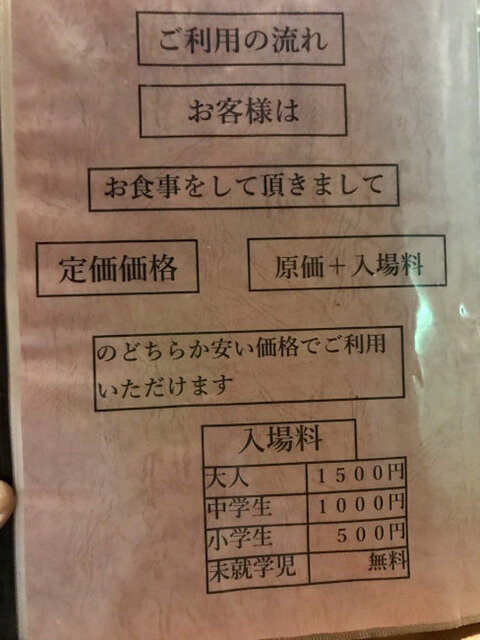 ご利用の流れ
お客様は
お食事をして頂きまして
定価価格
原価＋入場料
のどちらか安い価格でご利用
いただけます
入場料
大人 １５００円
中学生 １０００円
小学生 ５００円
未就学児 無料